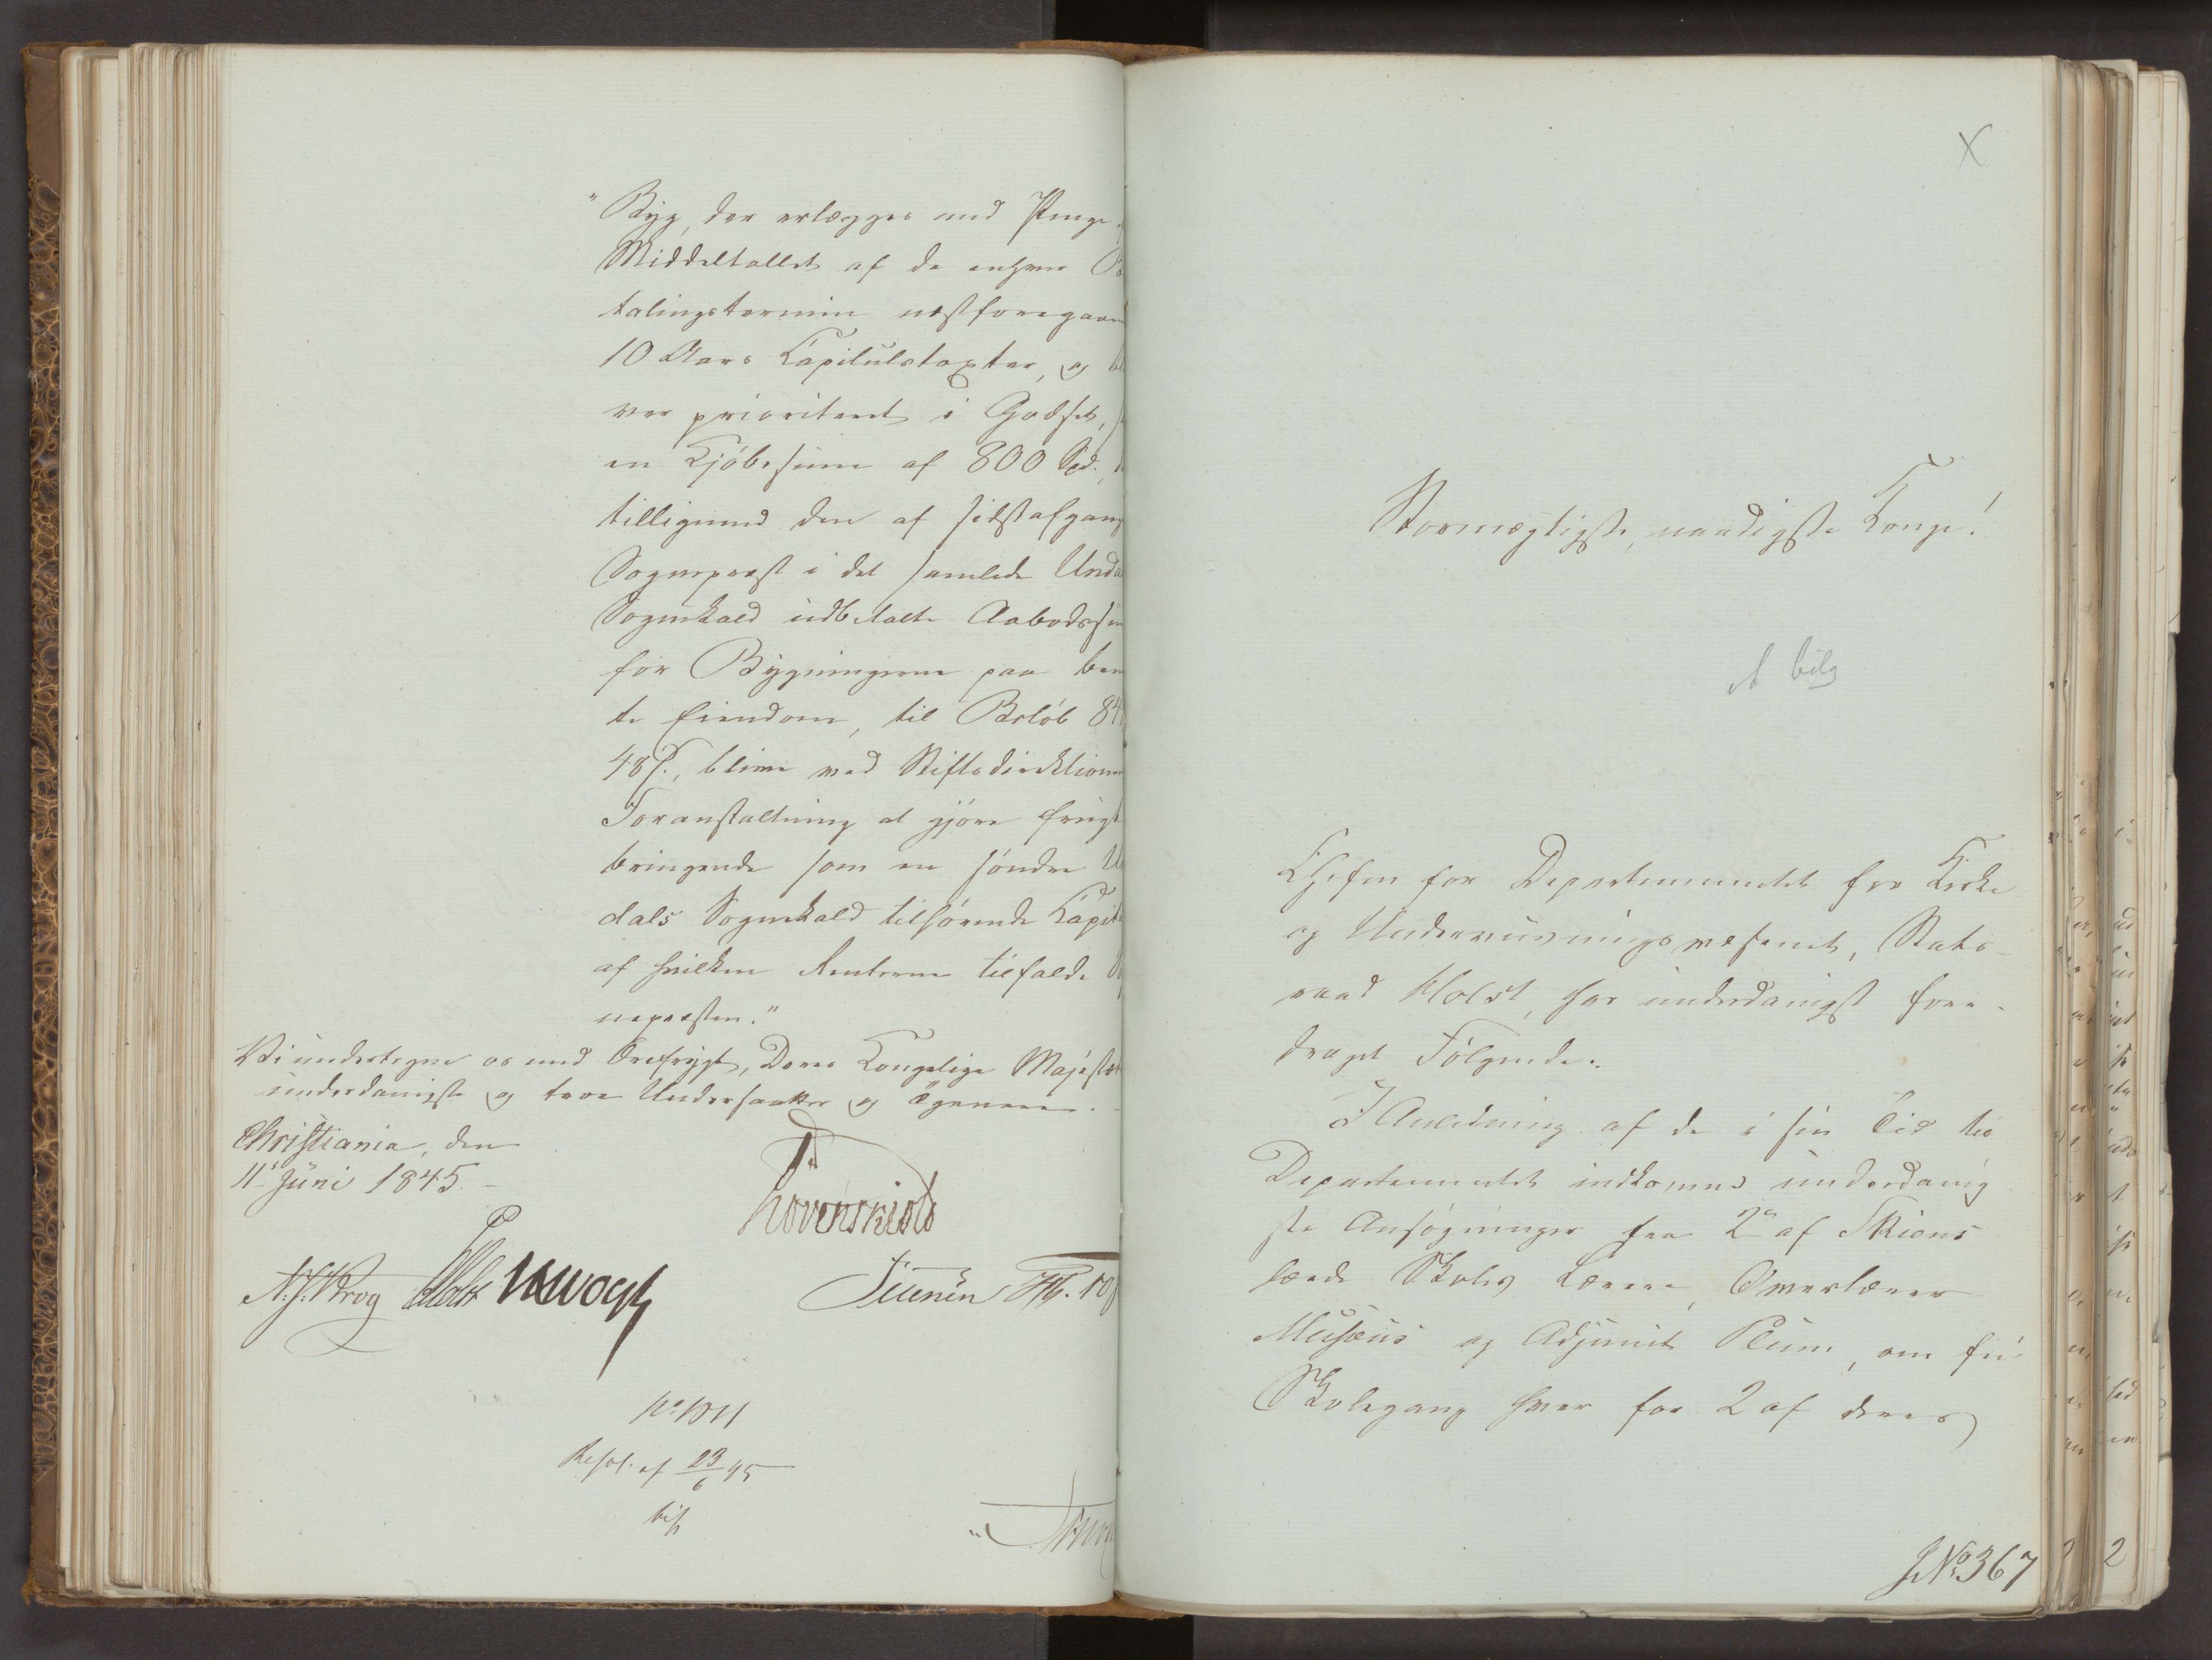 "Byg, der erlægges med Penge
Middeltallet af de enhver B
talingstermin næstforegaaen
10 Aars Capitulstaxter, og bl
ver prioriteret i Godset,
en Kjöbesum af 800 Spd.,
tilligemed den af sidstafgang
Sognepræst i det samlede Unda
Sognekald udbetalte Aabodssum
for Bygningerne paa ben
te Eiendom, til Beløb 84
48 s., blive ved Stiftsdirektionen
Foranstaltning at gjöre frugt
bringende som en söndre U
dals Sognekald tilhörende Capit
af hvilken Renterne tilfalde
nepræsten."
Vi undertegne os med Ærefrygt, Deres Kongelige Majestæt
underdanigste og troe Undersaatter og
Christiania, den
11te Juni 1845.
Lövenskiold
N. J. Krog Holst JHVogt
No 1011
Resol. af 23/6 45
X
Stormægtigste, naadigste Konge!
1 bilg
Chefen for Departementet for Kirke
og Underviisningsvæsenet, Stats
raad Holst, har underdanigst fore-
draget Følgende:
I Anledning af de i sin Tid til
Departementet indkomne underdanig
ste Ansøgninger fra 2de af Skiens
lærde Skoles Lærere, Overlærer
Musæus og Adjunct Blum, om fri
Skolegang hver for 2 af deres
J. No 367
2